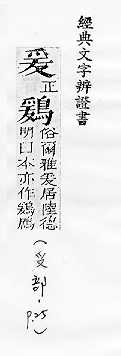 經典文字辨證書
爰正鶢俗爾雅爰居陸德
明曰本亦作鶢鶋
(𠬪部·p.25)